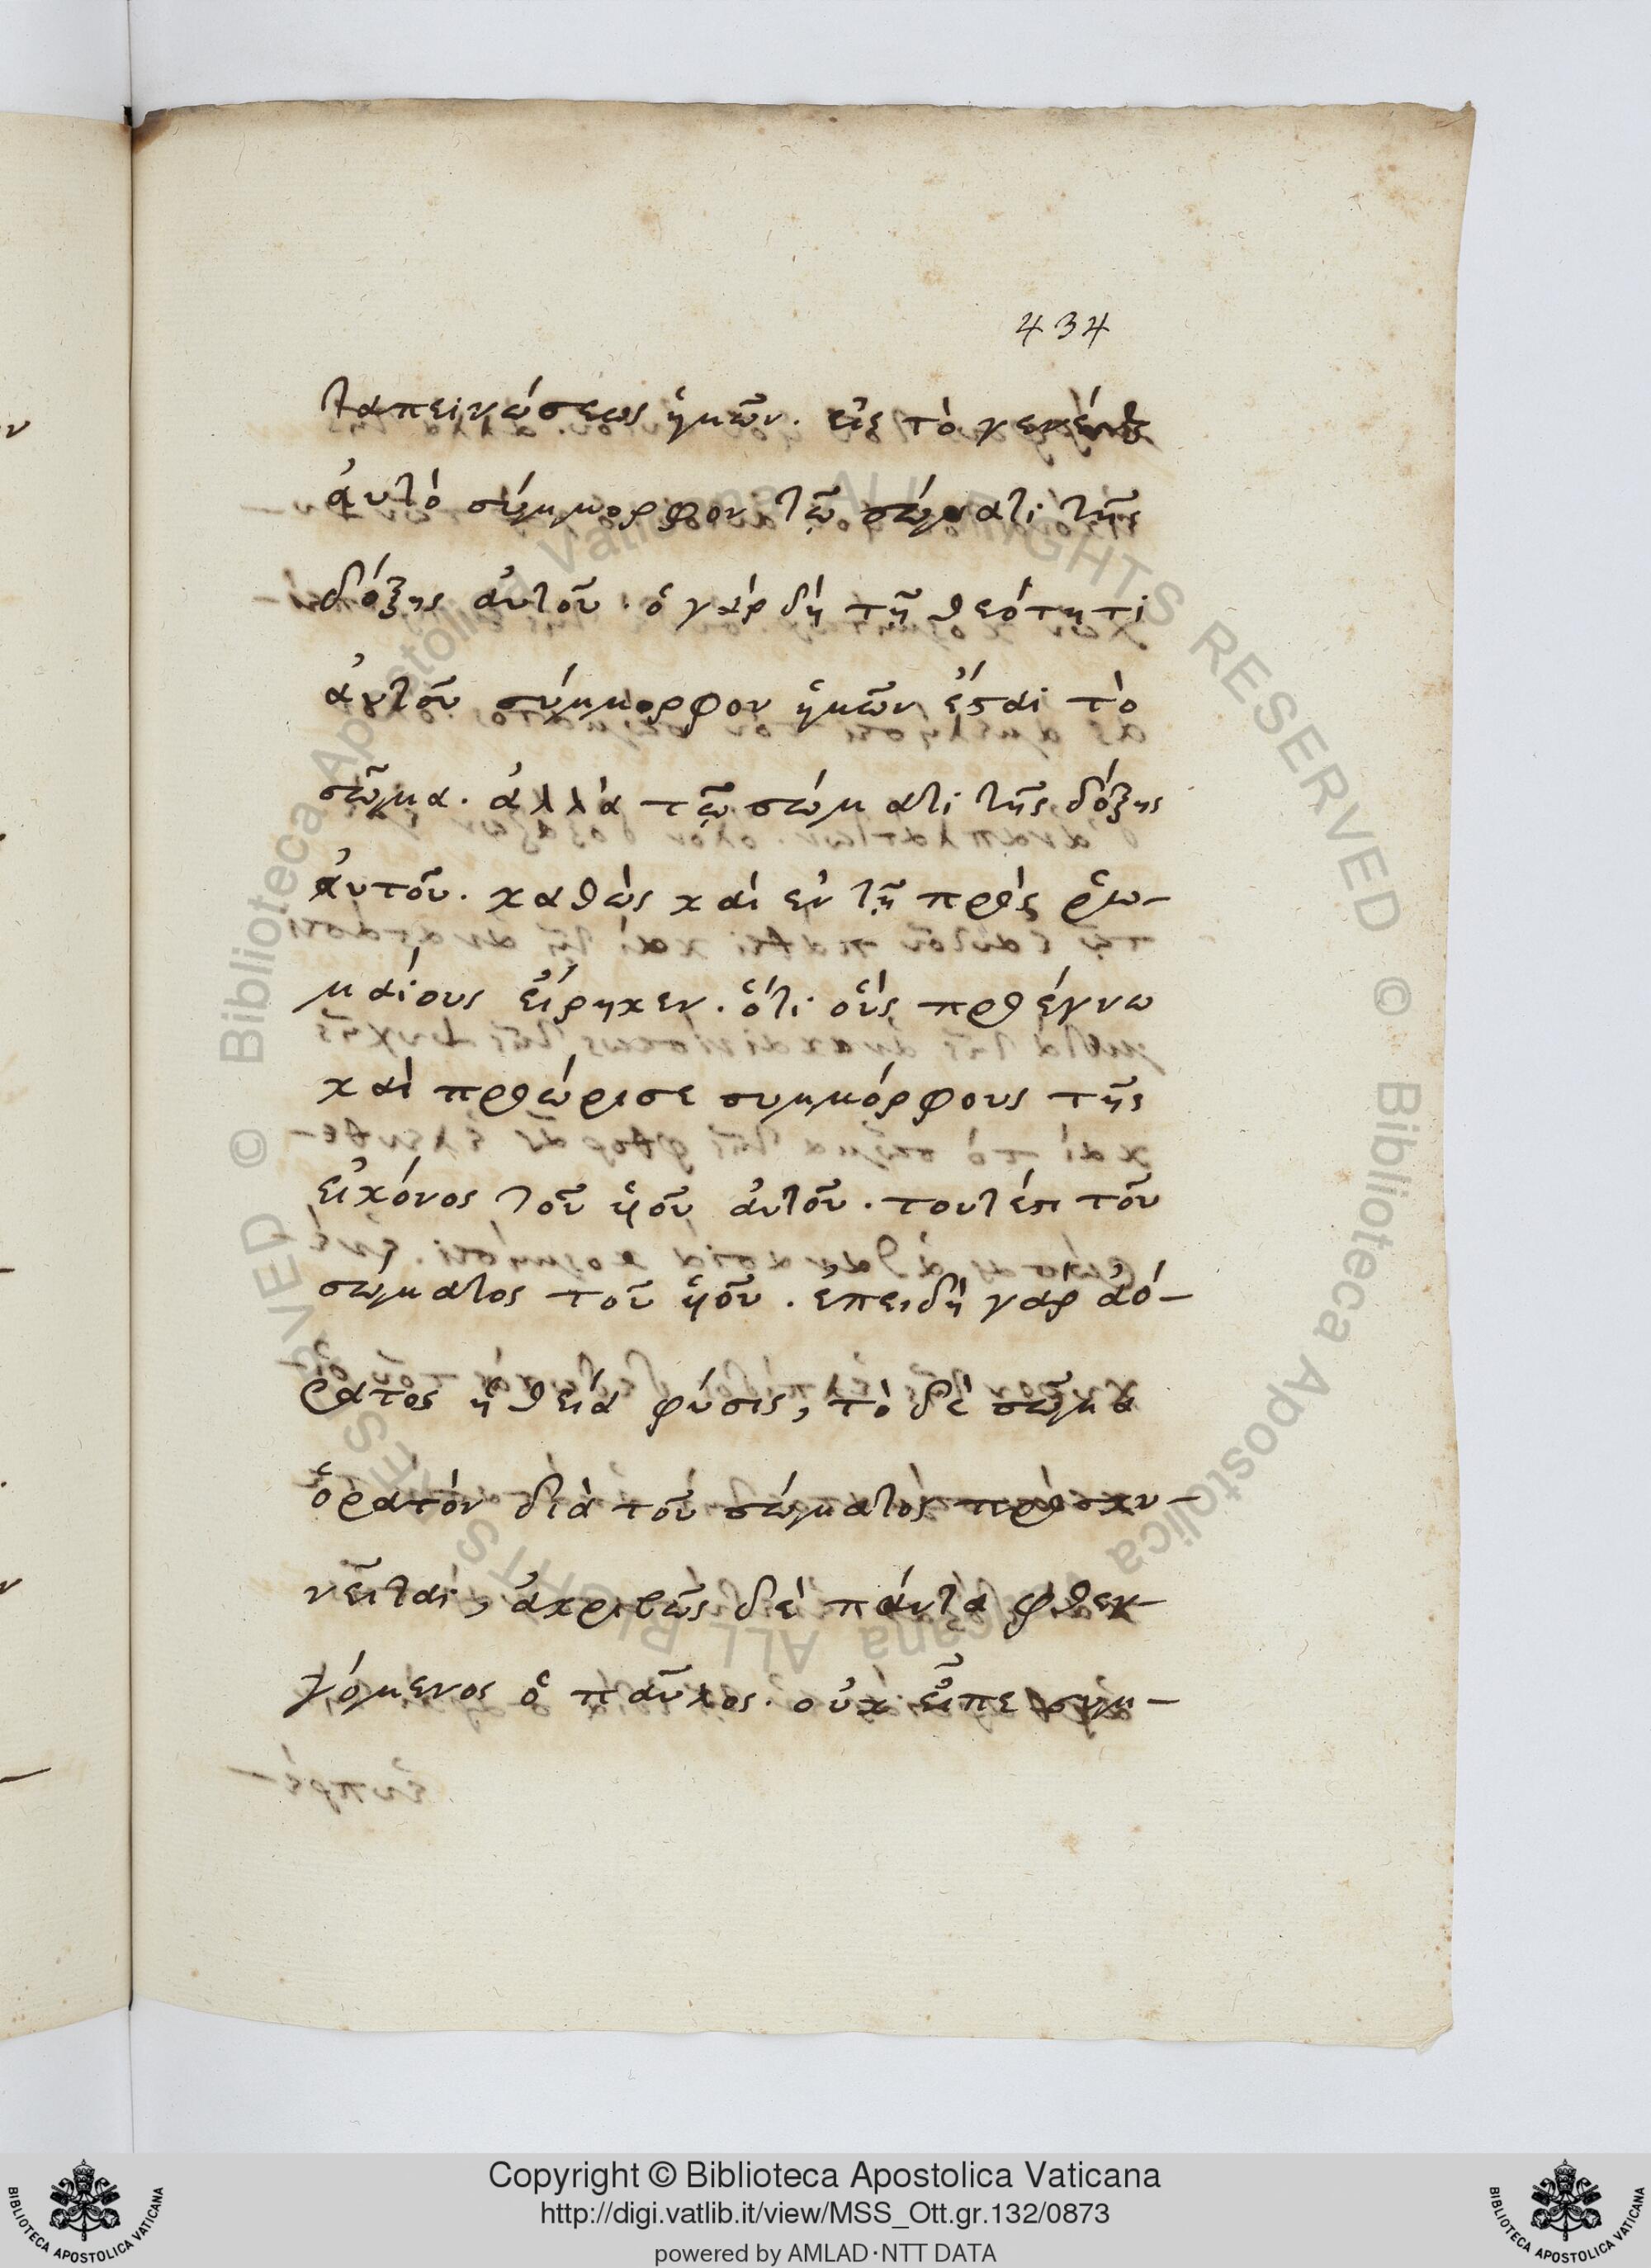 434
ταπεινώσεως ἡμῶν. εἰς τὸ γενέσθαι
ἀυτὸ σύμμορφον τῷ σώματι τῆς
δόξης ἀυτοῦ. ὁ γὰρ δὴ τῇ θεότητι
ἀυτοῦ σύμμορφον ἡμῶν ἔσται τὸ
σῶμα. ἀλλὰ τῷ σώματι τῆς δόξης
ἀυτοῦ. καθὼς καὶ ἐν τῇ πρὸς ῥω-
μαίους εἴρηκεν. ὅτι οὓς προέγνω
καὶ προώρισε συμμόρφους τῆς
εἰκόνος τοῦ ὑοῦ ἀυτοῦ. τουτέστι τοῦ
σώματος τοῦ ὑοῦ. ἐπειδὴ γὰρ ἀό-
ρατος ἡ θεία φύσις, τὸ δὲ σῶμα
ὁρατὸν διὰ τοῦ σώματος προσκυ-
νεῖται, ἀκριβῶς δὲ πάντα φθεγ-
γόμενος ὁ παῦλος. οὐκ εἶπε συμ-
Copyright © Biblioteca Apostolica Vaticana
http://digi.vatlib.it/view/MSS_Ott.gr.132/0873
powered by AMLAD·NTT DATA
BIBLIOTECA APOSTOLICA VATICANA
BIBLIOTECA APOSTOLICA VATICANA